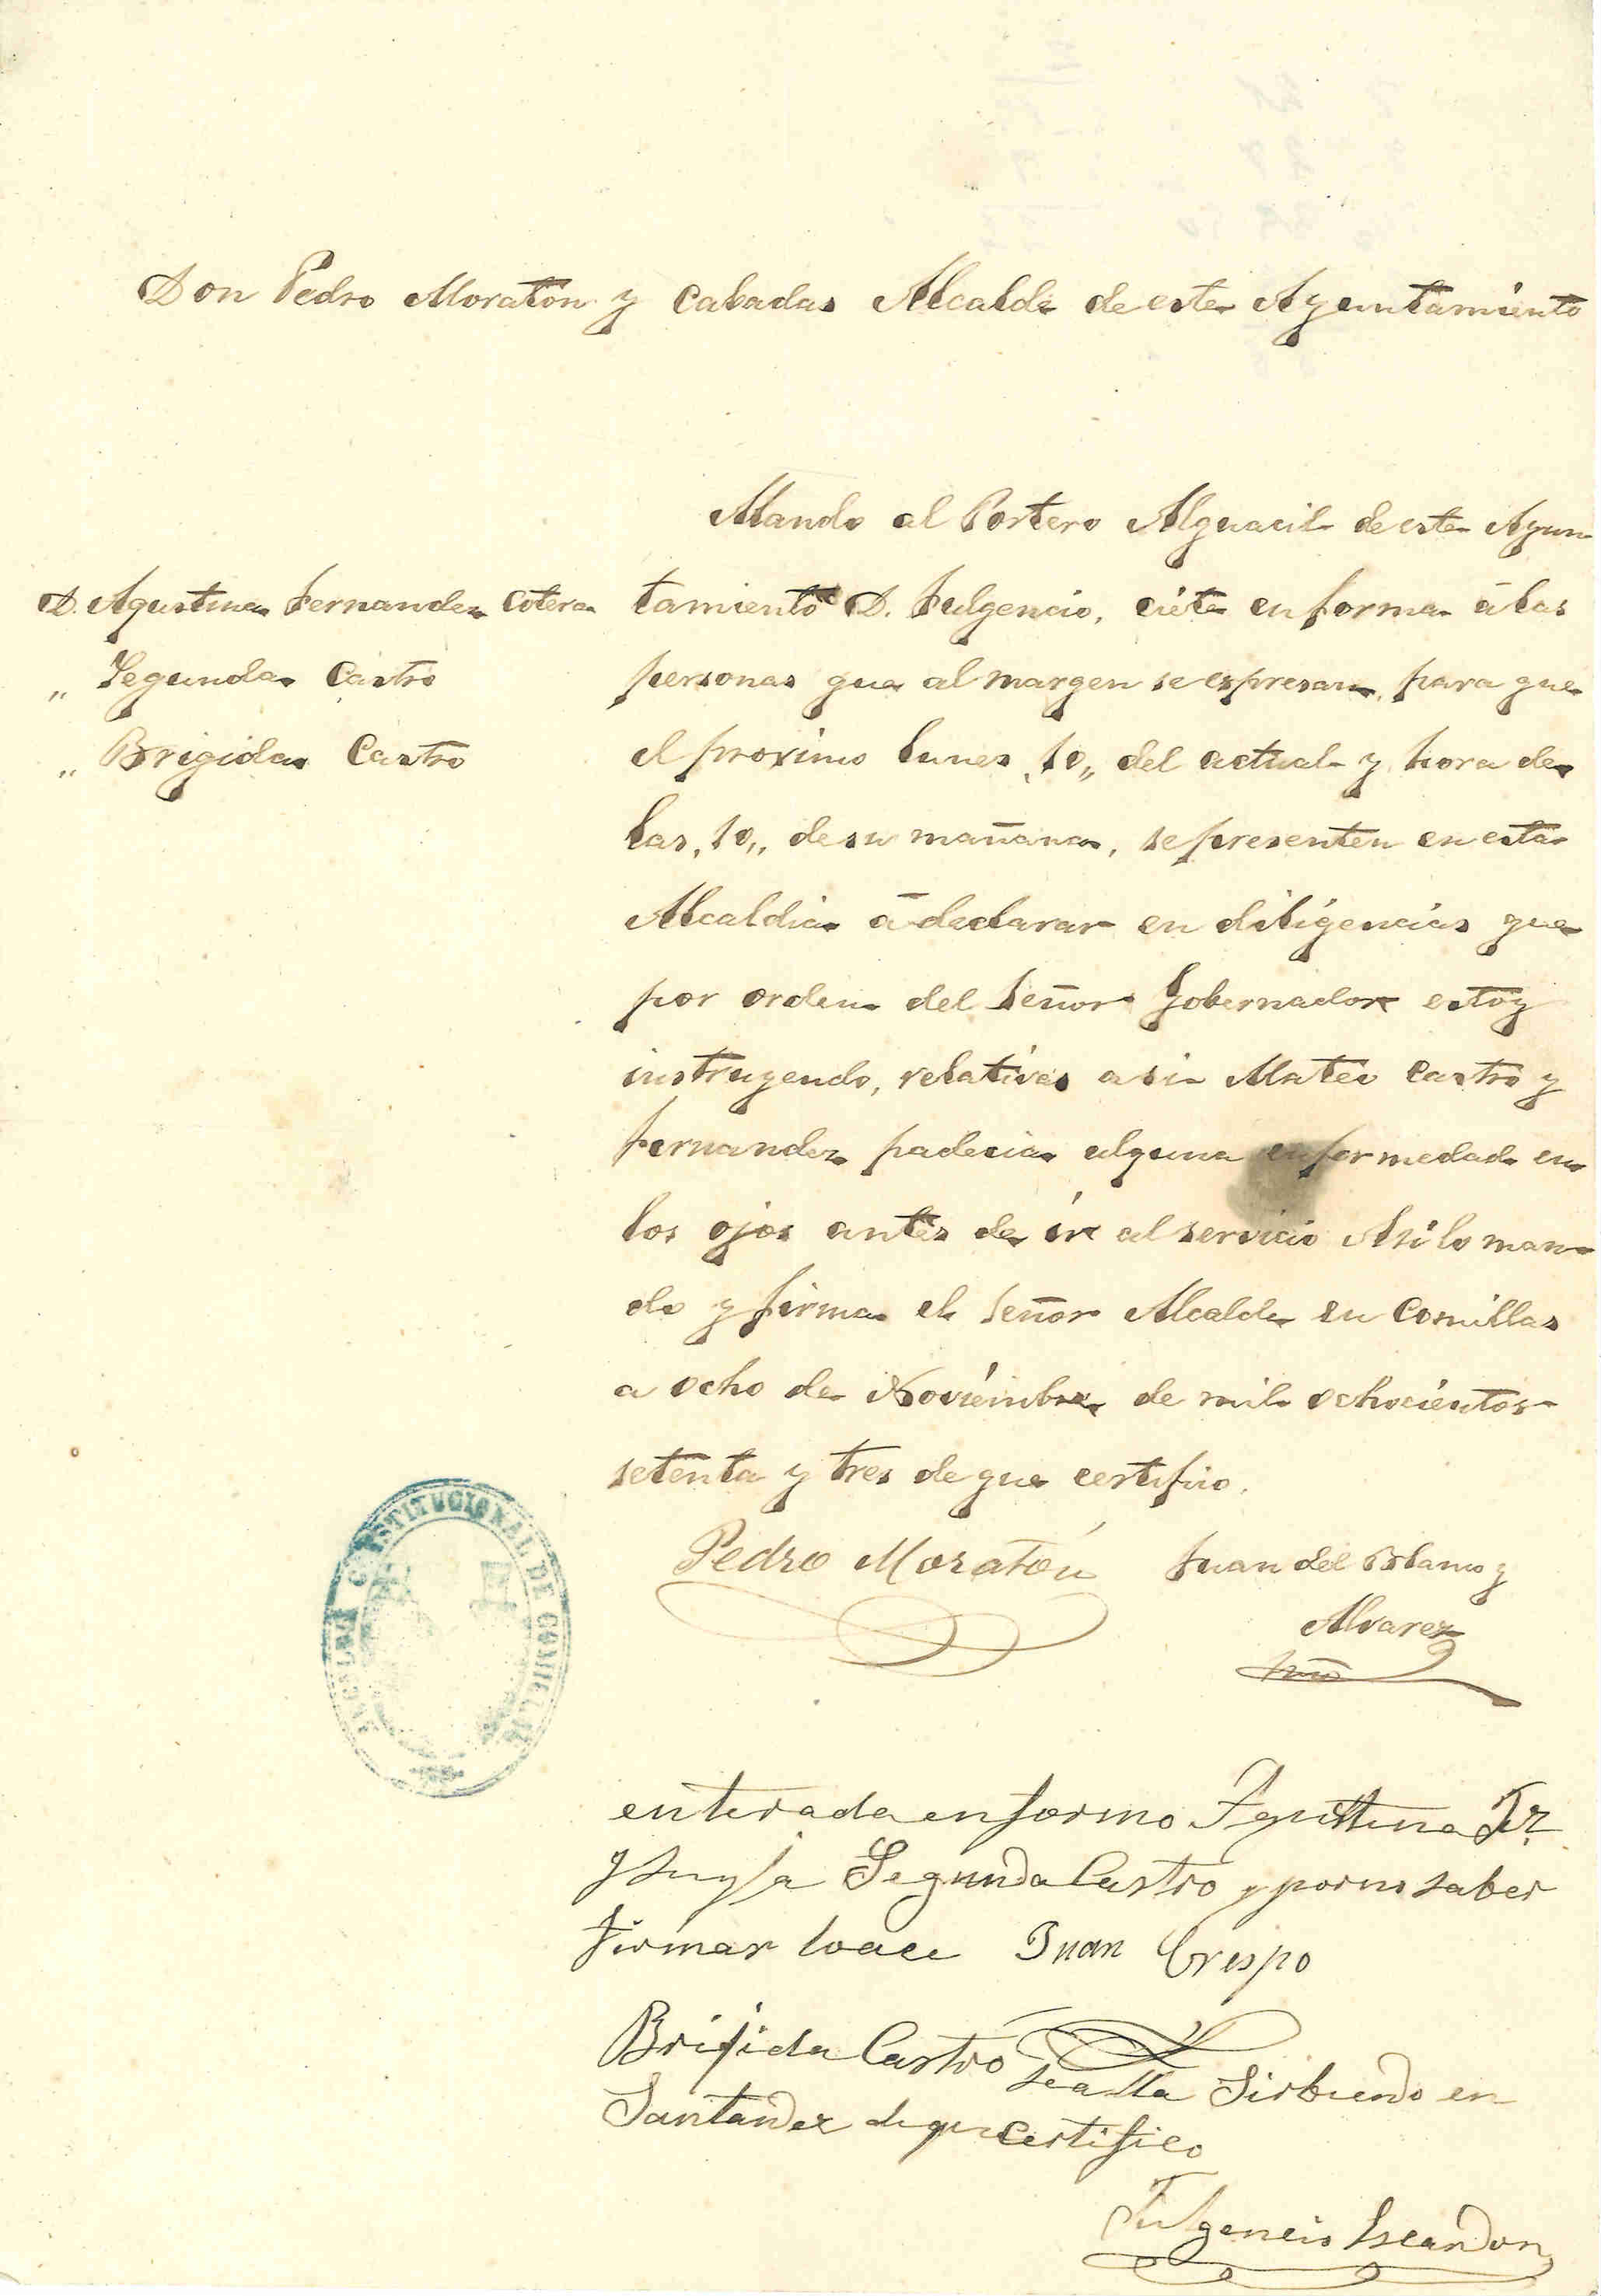 Don Pedro Moratón y Cabadas Alcalde de este Ayuntamiento
Mando al Portero Alguacil de este Ayun-
D. Agustina Fernandez Cotera
„ Segunda Castro
„ Brigida Castro
tamiento D. Fulgencio, cite en forma á las
personas que al margen se espresan, para que
el proximo lunes „10„ del actual y hora de
las „10„ de su mañana, se presenten en esta
Alcaldia á declarar en diligencias que
por orden del Señor Gobernador estoy
instruyendo, relativas a si Mateo Castro y
Fernandez padecia alguna enfermedad en
los ojos antes de ir al servicio Asi lo man-
do y firma el Señor Alcalde en Comillas
a ocho de Noviembre de mil ochocientos
setenta y tres de que certifico.
Pedro Moratón Juan del Blanco y
Alvarez
Srio
ALCALDIA CONSTITUCIONAL DE COMILLAS
enterada en formo Agustina Frz
y su yja Segunda Castro y por no saber
firmar loace Juan Crespo
Brijida Castro sealla Sirbiendo en
Santander de que Certifico
Fulgencio Escandon